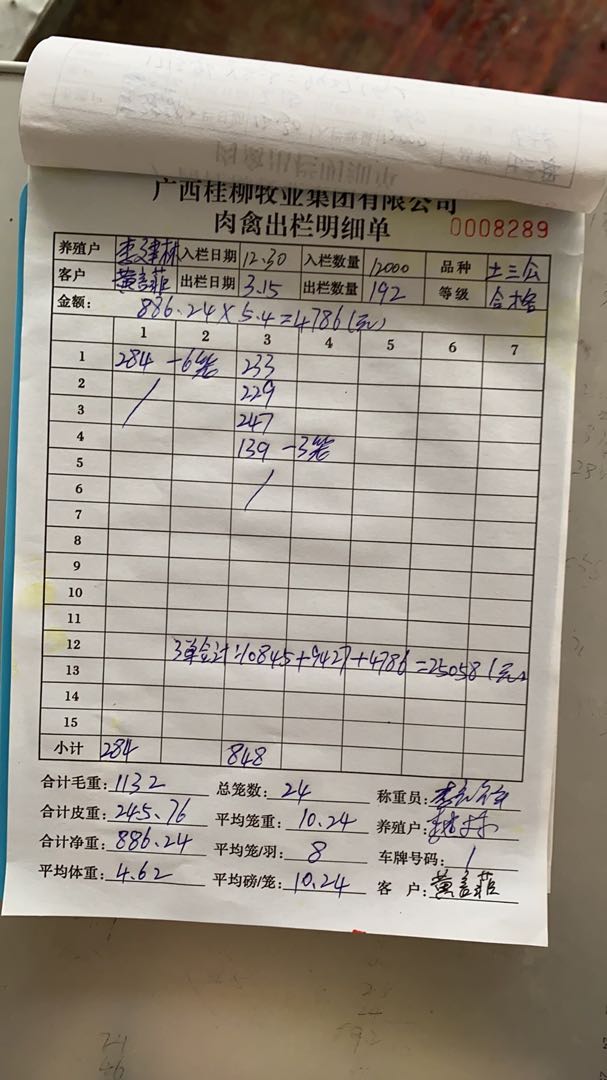 广西桂柳牧业集团有限公司
肉禽出栏明细单 0008289
养殖户 李建林 入栏日期 12.30 入栏数量 12000 品种 土三公
客户 出栏日期 3.15 出栏数量 192 等级 合格
金额: 886.24×5.4=4786(元)
1 2 3 4 5 6 7
1 284 -6笼 233
2 / 229
3 247
4 139 -3笼
5 /
6
7
8
9
10
11
12 3单合计:10845+9427+4786=25058(元)
13
14
15
小计 284 848
合计毛重: 1132 总笼数: 24 称重员:
合计皮重: 245.76 平均笼重: 10.24 养殖户:
合计净重: 886.24 平均笼/羽: 8 车牌号码: 1
平均体重: 4.62 平均磅/笼: 10.24 客 户: